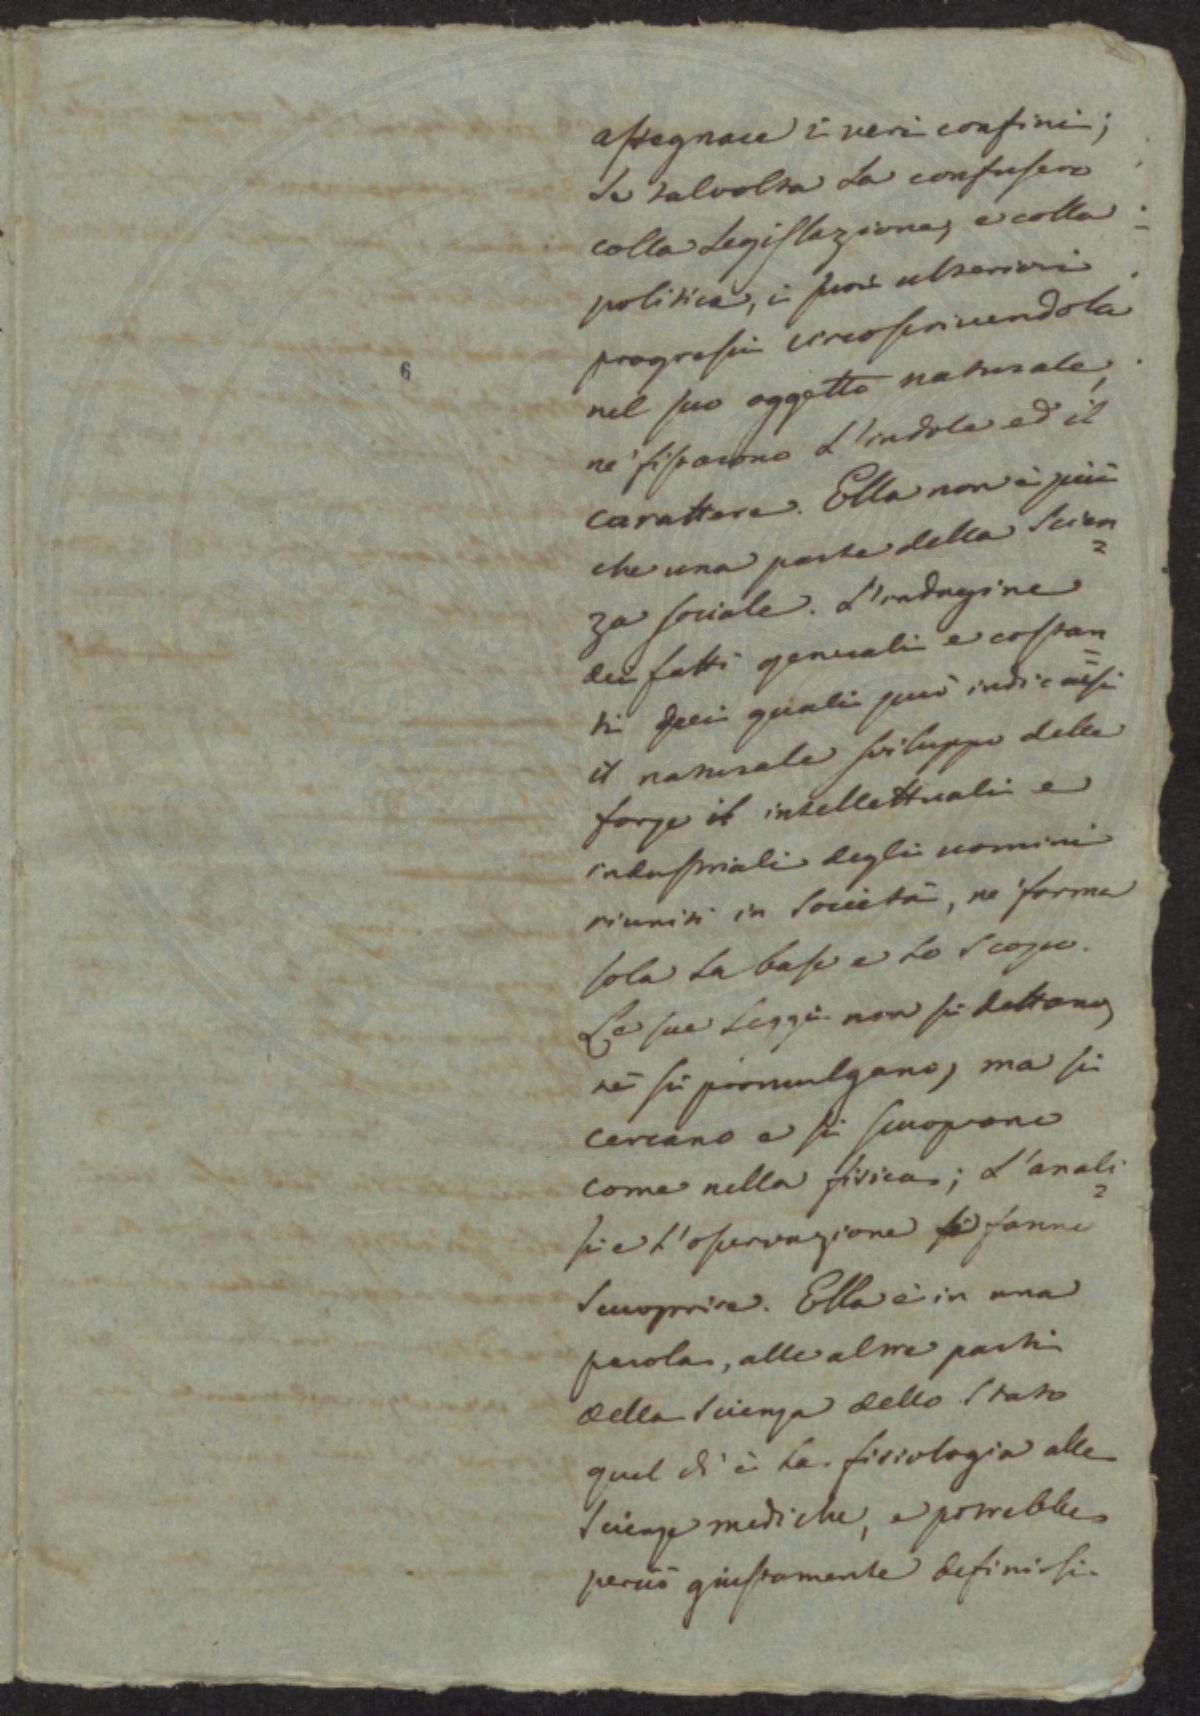 assegnare i veri confini;
se talvolta la confusero
colla legislazione, e colla
politica, i suoi ulteriori
progressi circoscrivendola
nel suo oggetto naturale,
6
ne fissarono l'indole ed il
carattere. Ella non è più
che una parte della Scien=
za sociale. L'indagine
dei fatti generali e costan=
ti dei quali può indicarsi
il naturale sviluppo delle
forze intellettuali e
industriali degli uomini
riuniti in Società, ne forma
sola la base e lo scopo.
Le sue Leggi non si dettano,
nè si promulgano, ma si
cercano e si scuoprono
come nella fisica; l'anali=
si e l'osservazione fanno
scuoprire. Ella è in una
parola, alle altre parti
della Scienza dello Stato
quel di è la fisiologia alle
Scienze mediche, e potrebbe
perciò giustamente definirsi